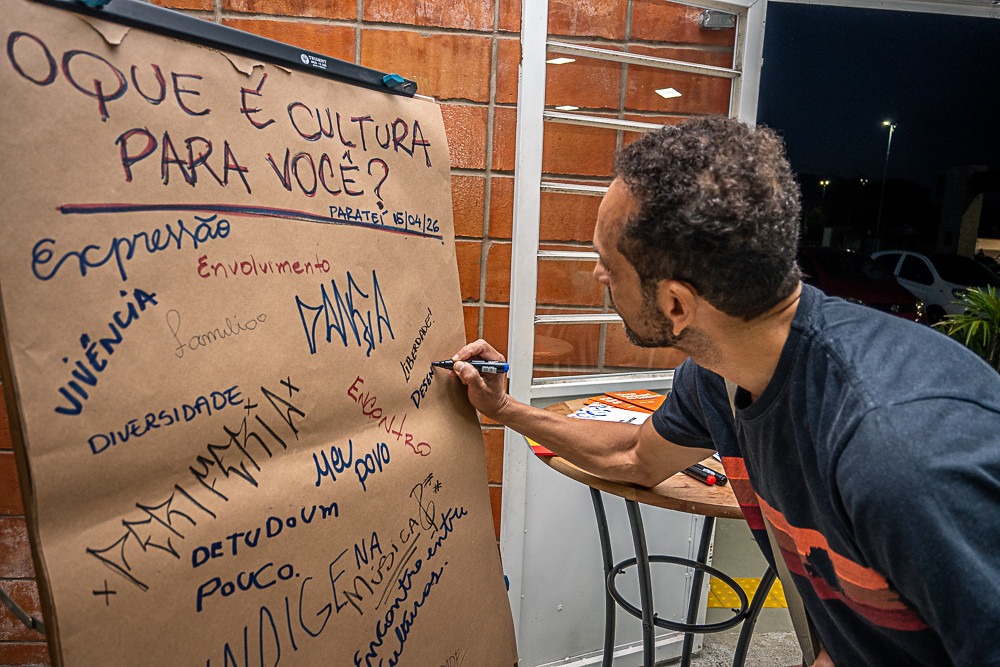 OQUE É CULTURA
PARA VOCÊ?
PARATEÍ 15/04/26
Expressão
Envolvimento
VIVÊNCIA
família
LIBERDADE!
DESEN
DIVERSIDADE
ENCONTRO
MEU POVO
DE TUDO UM
POUCO.
INDIGENA
MÚSICA
Encontro entre
culturas.